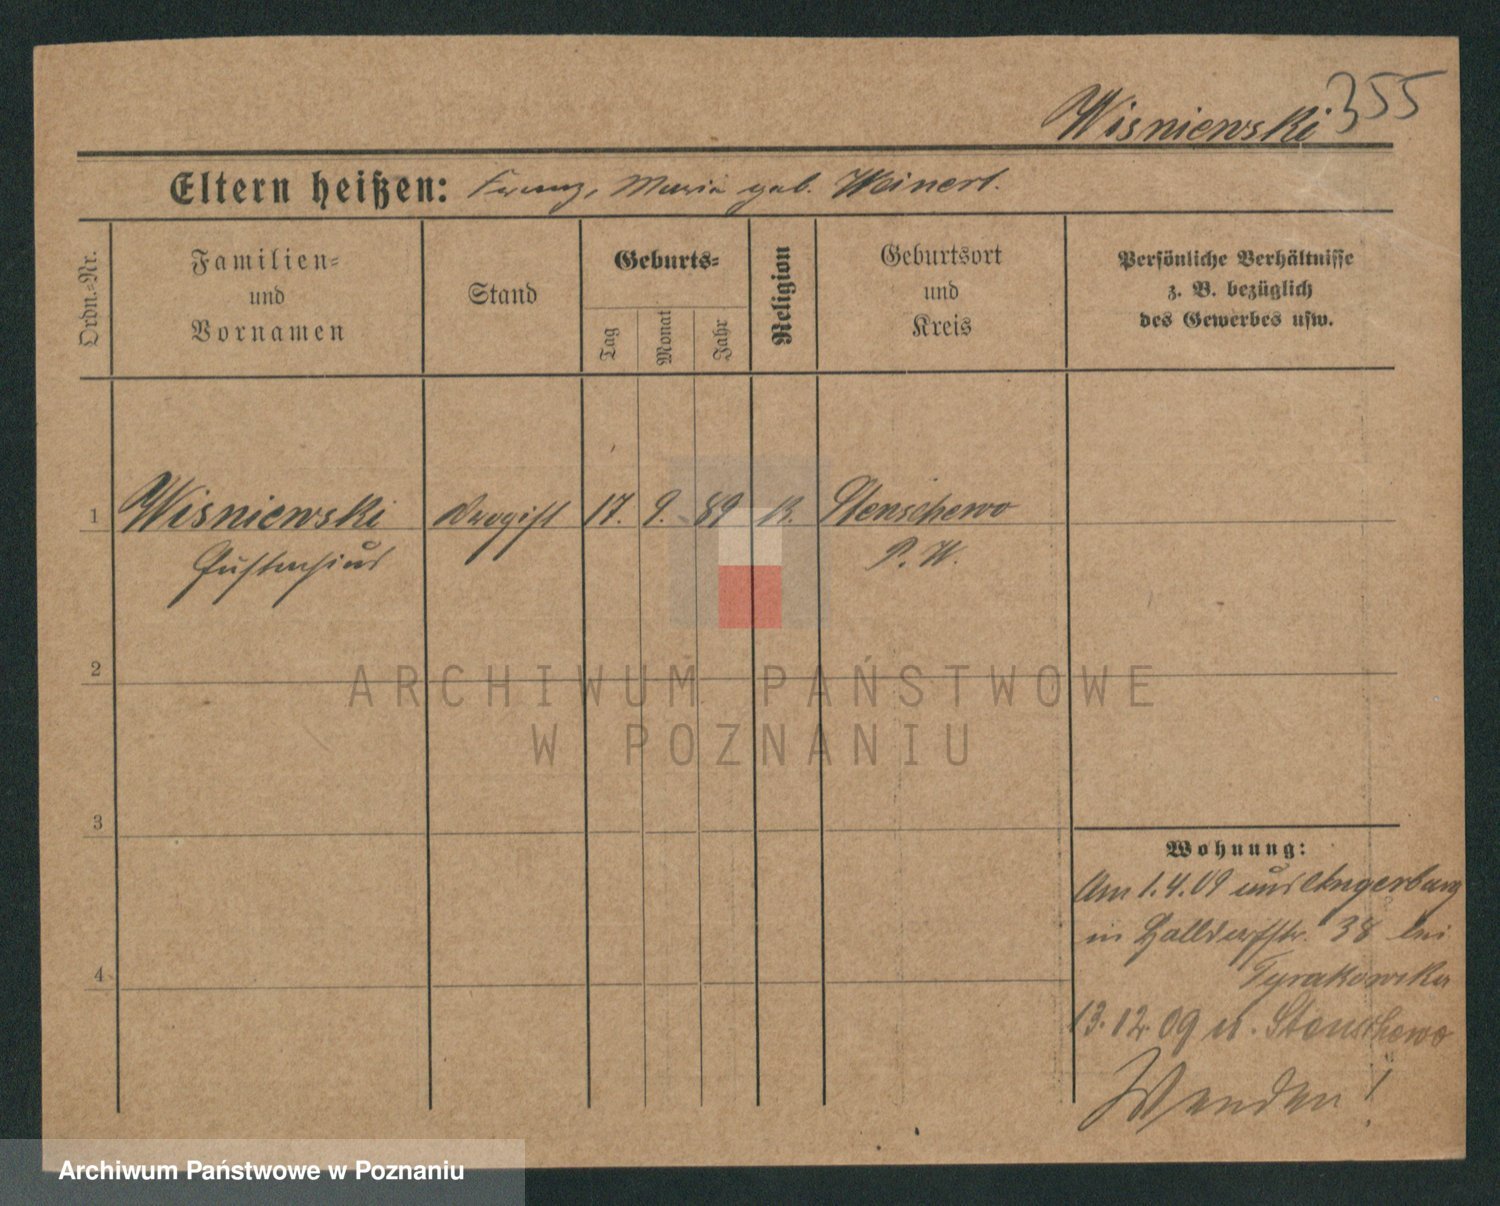 Wisniewski 355
Eltern heißen: Franz, Maria geb. Weinert.
Ordn.-Nr.
Familien-
und
Vornamen
Stand
Geburts-
Tag
Monat
Jahr
Religion
Geburtsort
und
Kreis
Persönliche Verhältnisse
z. B. bezüglich
des Gewerbes usw.
1 Wisniewski Drogist 17. 9. 89 Stenschewo
P. W.
2
3
4
Wohnung:
Am 1.4.09 aus Angerburg
in Halldorfstr. 38 bei
Tyrakowska
13.12.09 n. Stenschewo
Wenden!
ARCHIWUM PAŃSTWOWE
W POZNANIU
Archiwum Państwowe w Poznaniu